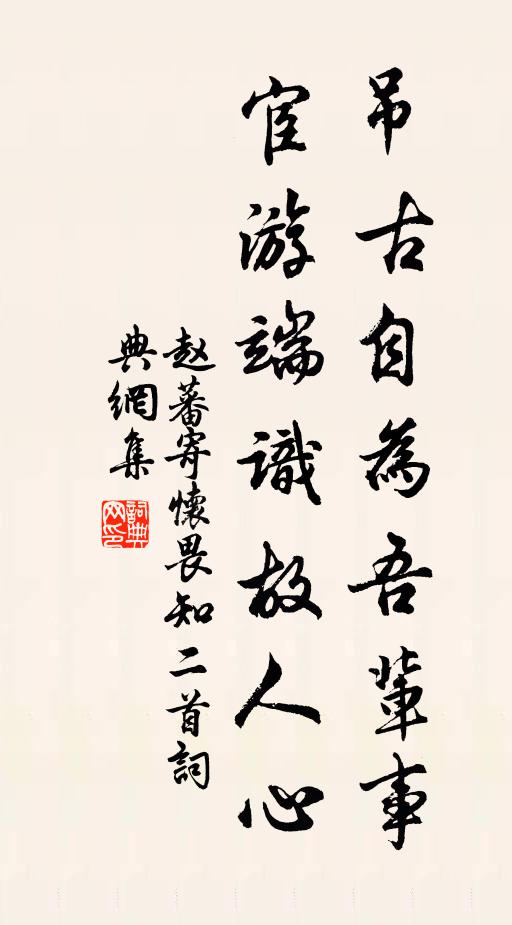 吊古自為吾輩事
宦游端識故人心
赵蕃寄懷畏知二首詞
典網集
詞典网印